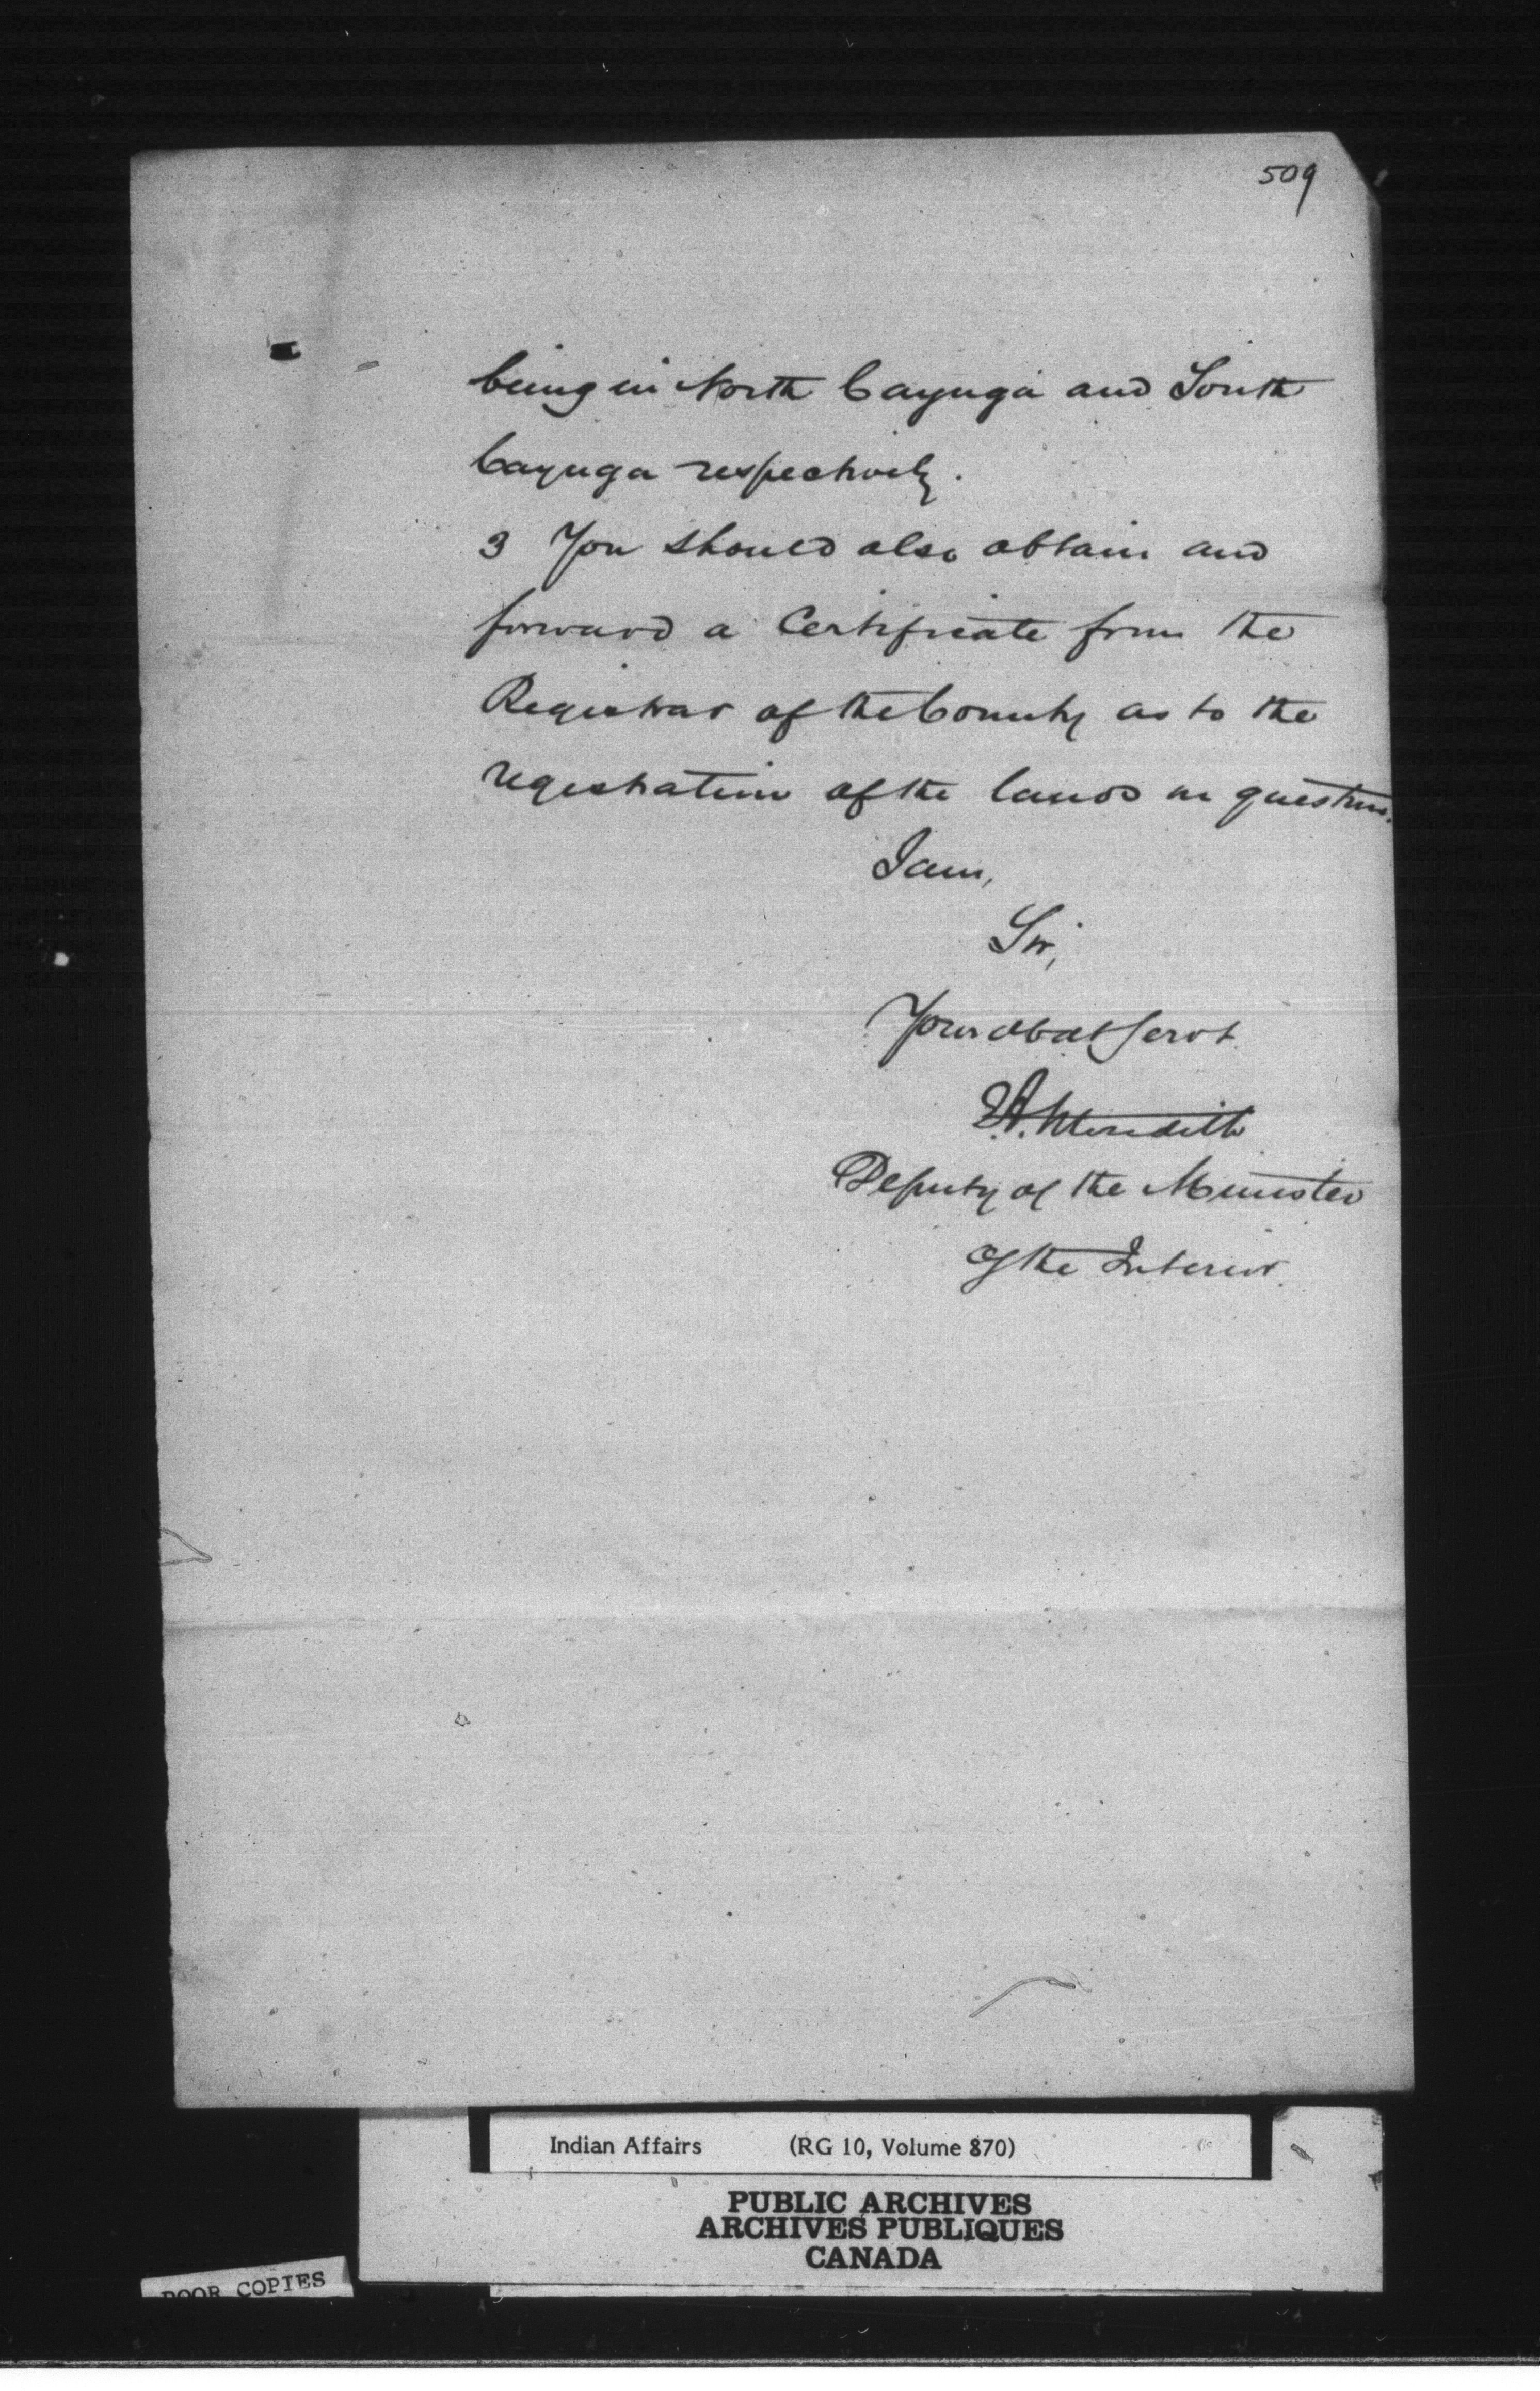 509
being in North Cayuga and South
Cayuga respectively.
3 You should also obtain and
forward a Certificate from the
Registrar of the County as to the
registration of the lands in question.
I am,
Sir,
Your obdt Servt
E.A. Meredith
Deputy of the Minister
of the Interior.
Indian Affairs (RG 10, Volume 870)
PUBLIC ARCHIVES
ARCHIVES PUBLIQUES
CANADA
POOR COPIES